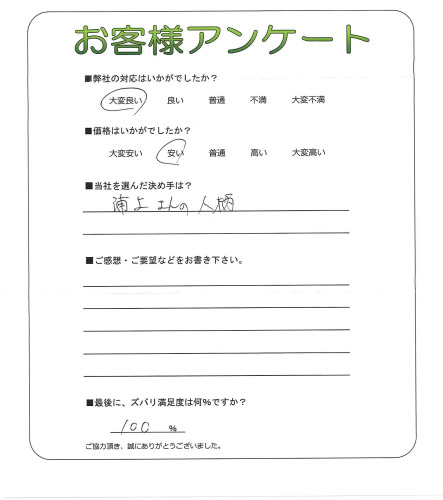 お客様アンケート
■弊社の対応はいかがでしたか?
大変良い 良い 普通 不満 大変不満
■価格はいかがでしたか?
大変安い 安い 普通 高い 大変高い
■当社を選んだ決め手は?
さんの人柄
■ご感想・ご要望などをお書き下さい。
■最後に、ズバリ満足度は何%ですか?
100 %
ご協力頂き、誠にありがとうございました。